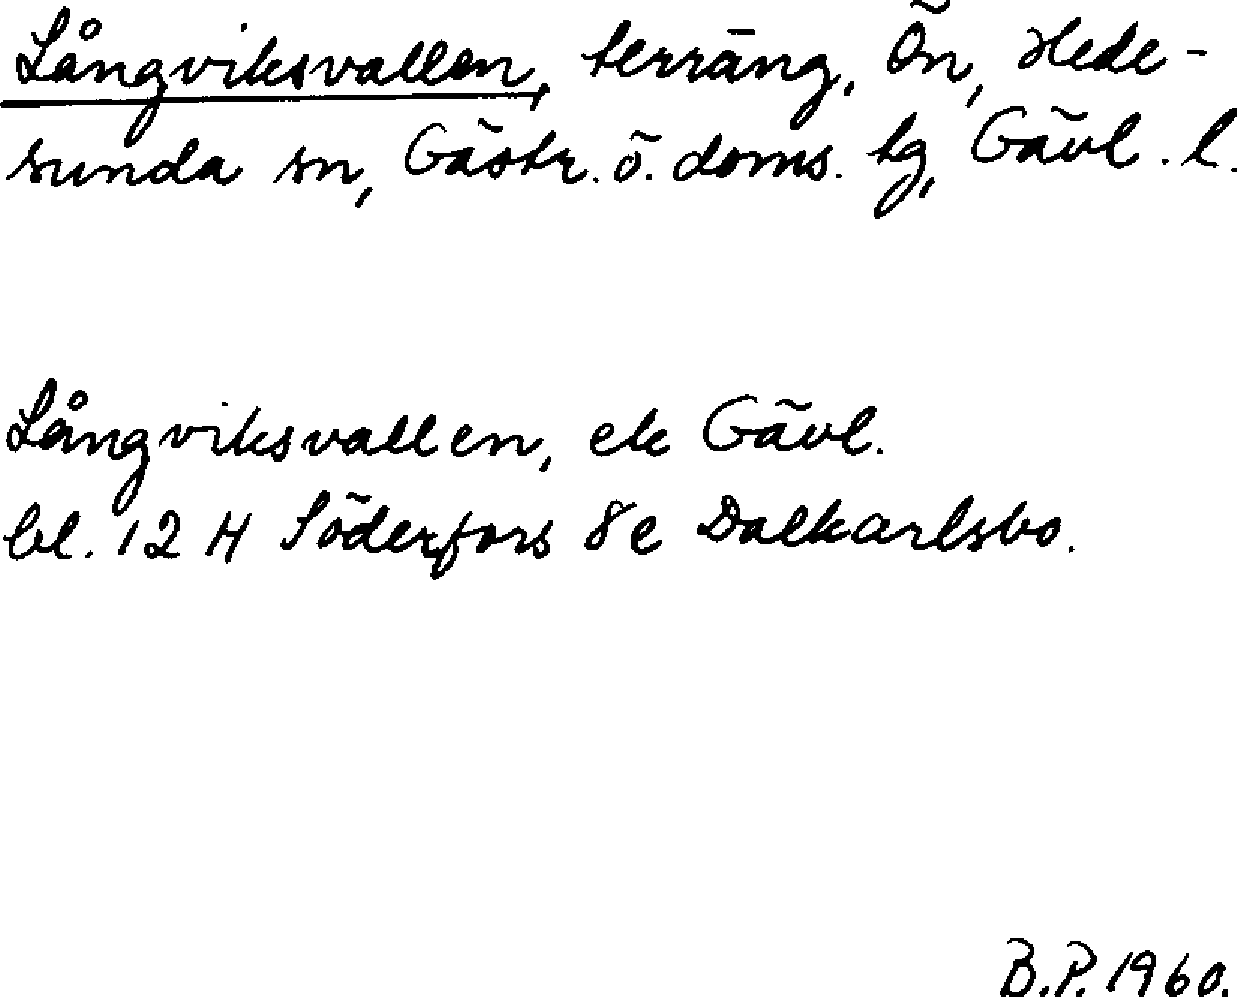 Långviksvallen, terräng, Ön, Hede-
sunda sn, Gästr. ö. doms. tg, Gävl. l.
Långviksvallen, ek Gävl.
bl. 12 H Söderfors 8e Dalkarlsbo.
B.P. 1960.